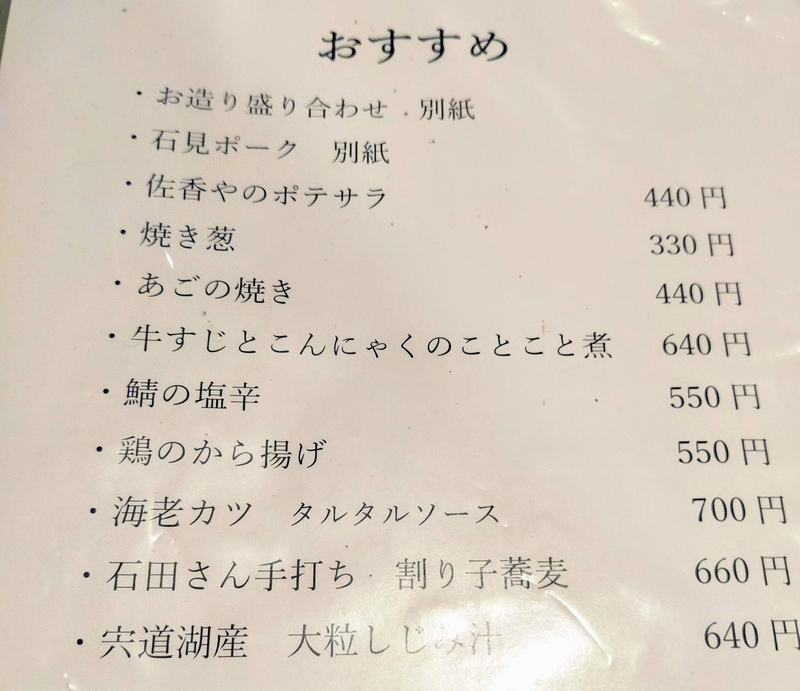 おすすめ
・お造り盛り合わせ . 別紙
・石見ポーク 別紙
・佐香やのポテサラ 440円
・焼き葱 330円
・あごの焼き 440円
・牛すじとこんにゃくのことこと煮 640円
・鯖の塩辛 550円
・鶏のから揚げ 550円
・海老カツ タルタルソース 700円
・石田さん手打ち 割り子蕎麦 660円
・宍道湖産 大粒しじみ汁 640円